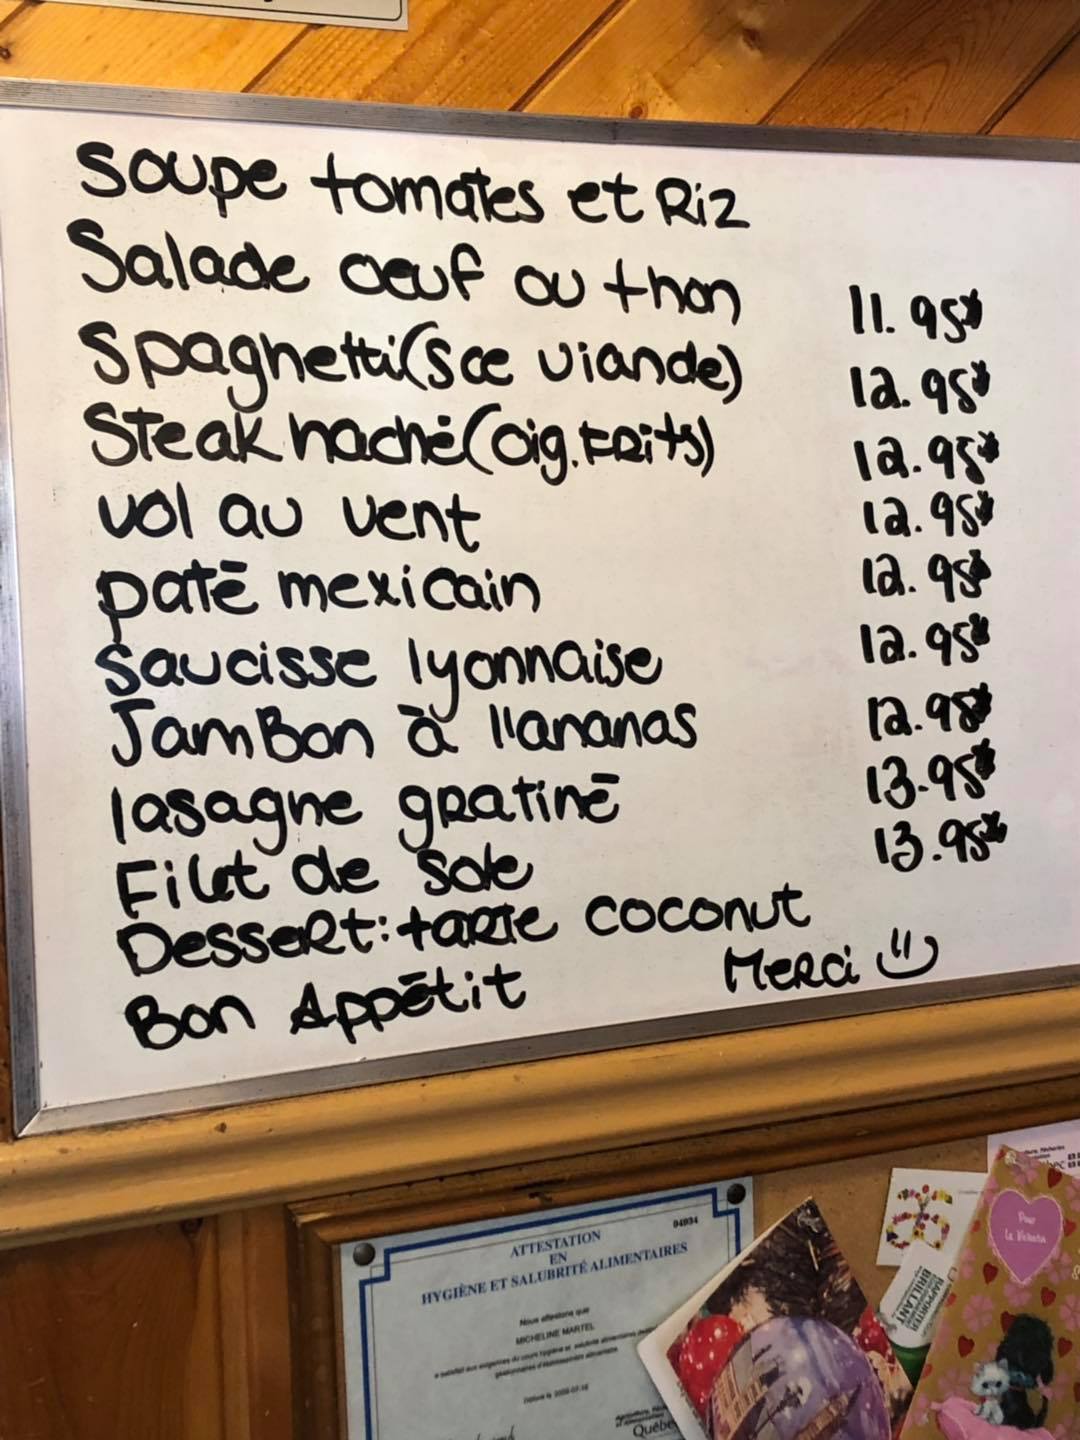 Soupe tomates et Riz
Salade oeuf ou thon 11.95*
Spaghetti(sce viande) 12.95*
Steak haché(oig.frits) 12.95*
vol au vent 12.95*
paté mexicain 12.95*
Saucisse lyonnaise 12.95*
Jambon à l'ananas 12.95*
lasagne gratiné 13.95*
Filet de sole 13.95*
Dessert: tarte coconut
Bon Appétit Merci
04934
ATTESTATION
EN
HYGIÈNE ET SALUBRITÉ ALIMENTAIRES
Nous attestons que
MICHELINE MARTEL
Québec
RAPPORTER
BRILLANT
Pour
la Victoria